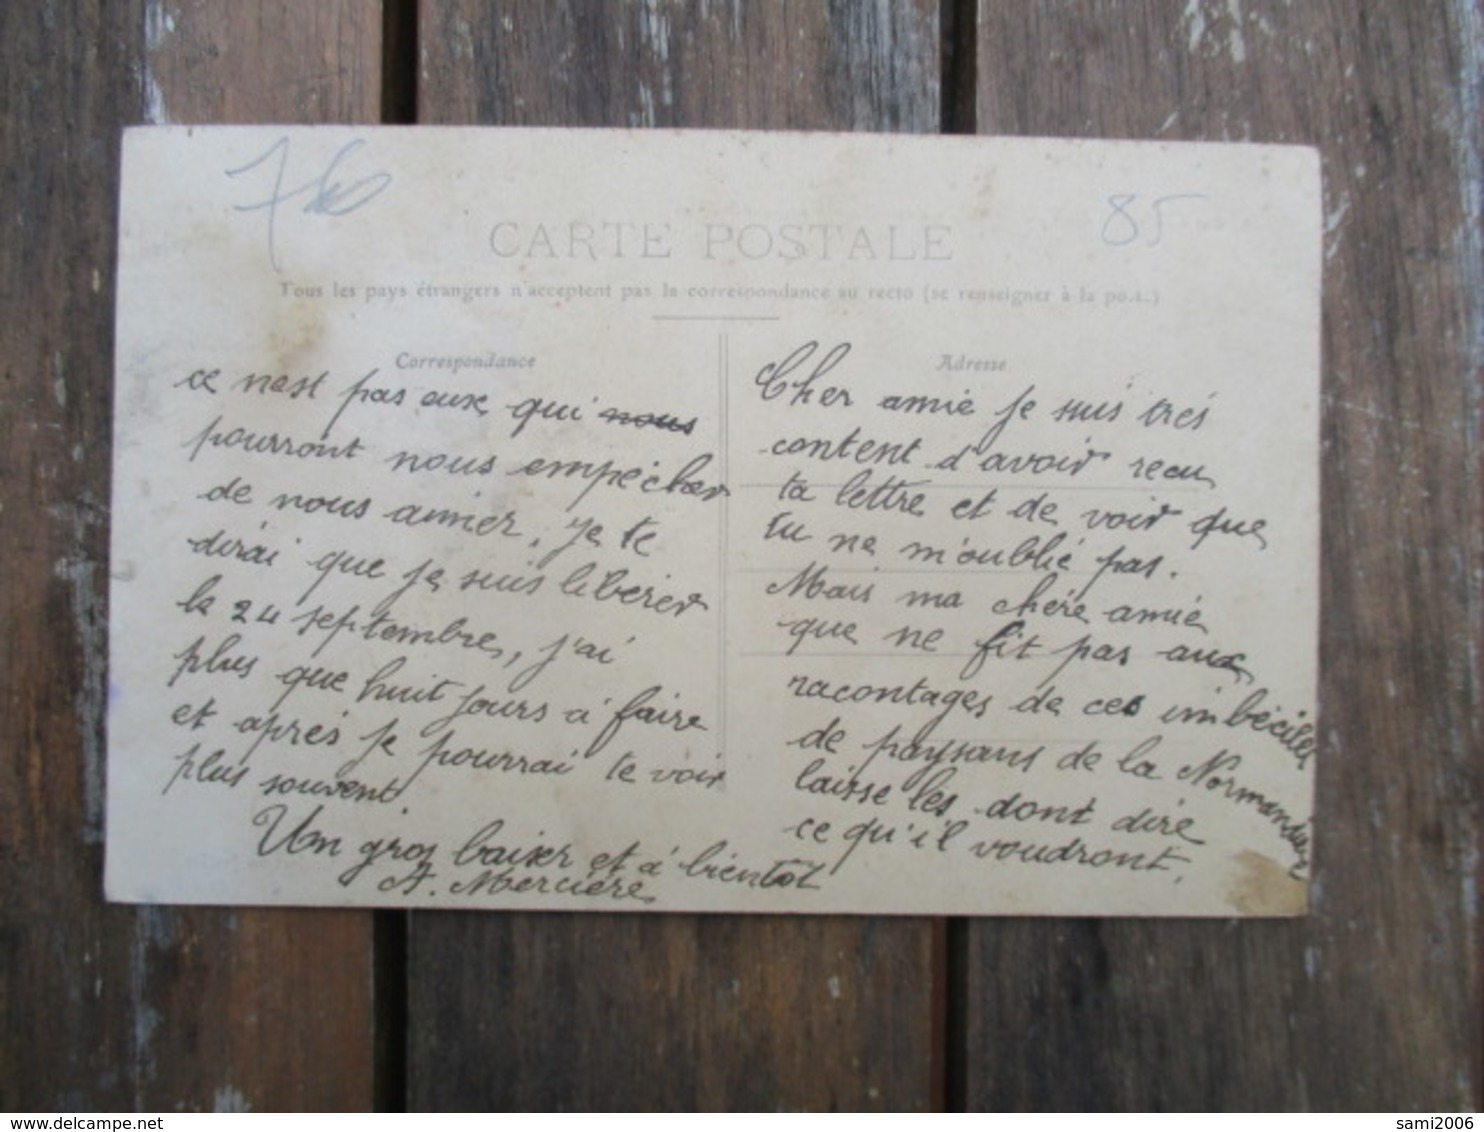 76
85
CARTE POSTALE
Tous les pays étrangers n'acceptent pas la correspondance au recto (se renseigner à la poste.)
Correspondance
ce nest pas eux qui nous
pourront nous empécher
de nous aimer, je te
dirai que je suis libérer
le 24 septembre, j'ai
plus que huit jours à faire
et après je pourrai te voir
plus souvent.
Un gros baiser et à bientôt
A. Mercière
Adresse
Cher amie je suis très
content d'avoir recu
ta lettre et de voir que
tu ne m'oublié pas.
Mais ma chére amie
que ne fit pas aux
racontages de ces imbéciles
de paysans de la Normandier
laisse les dont dire
ce qu'il voudront.
sami2006